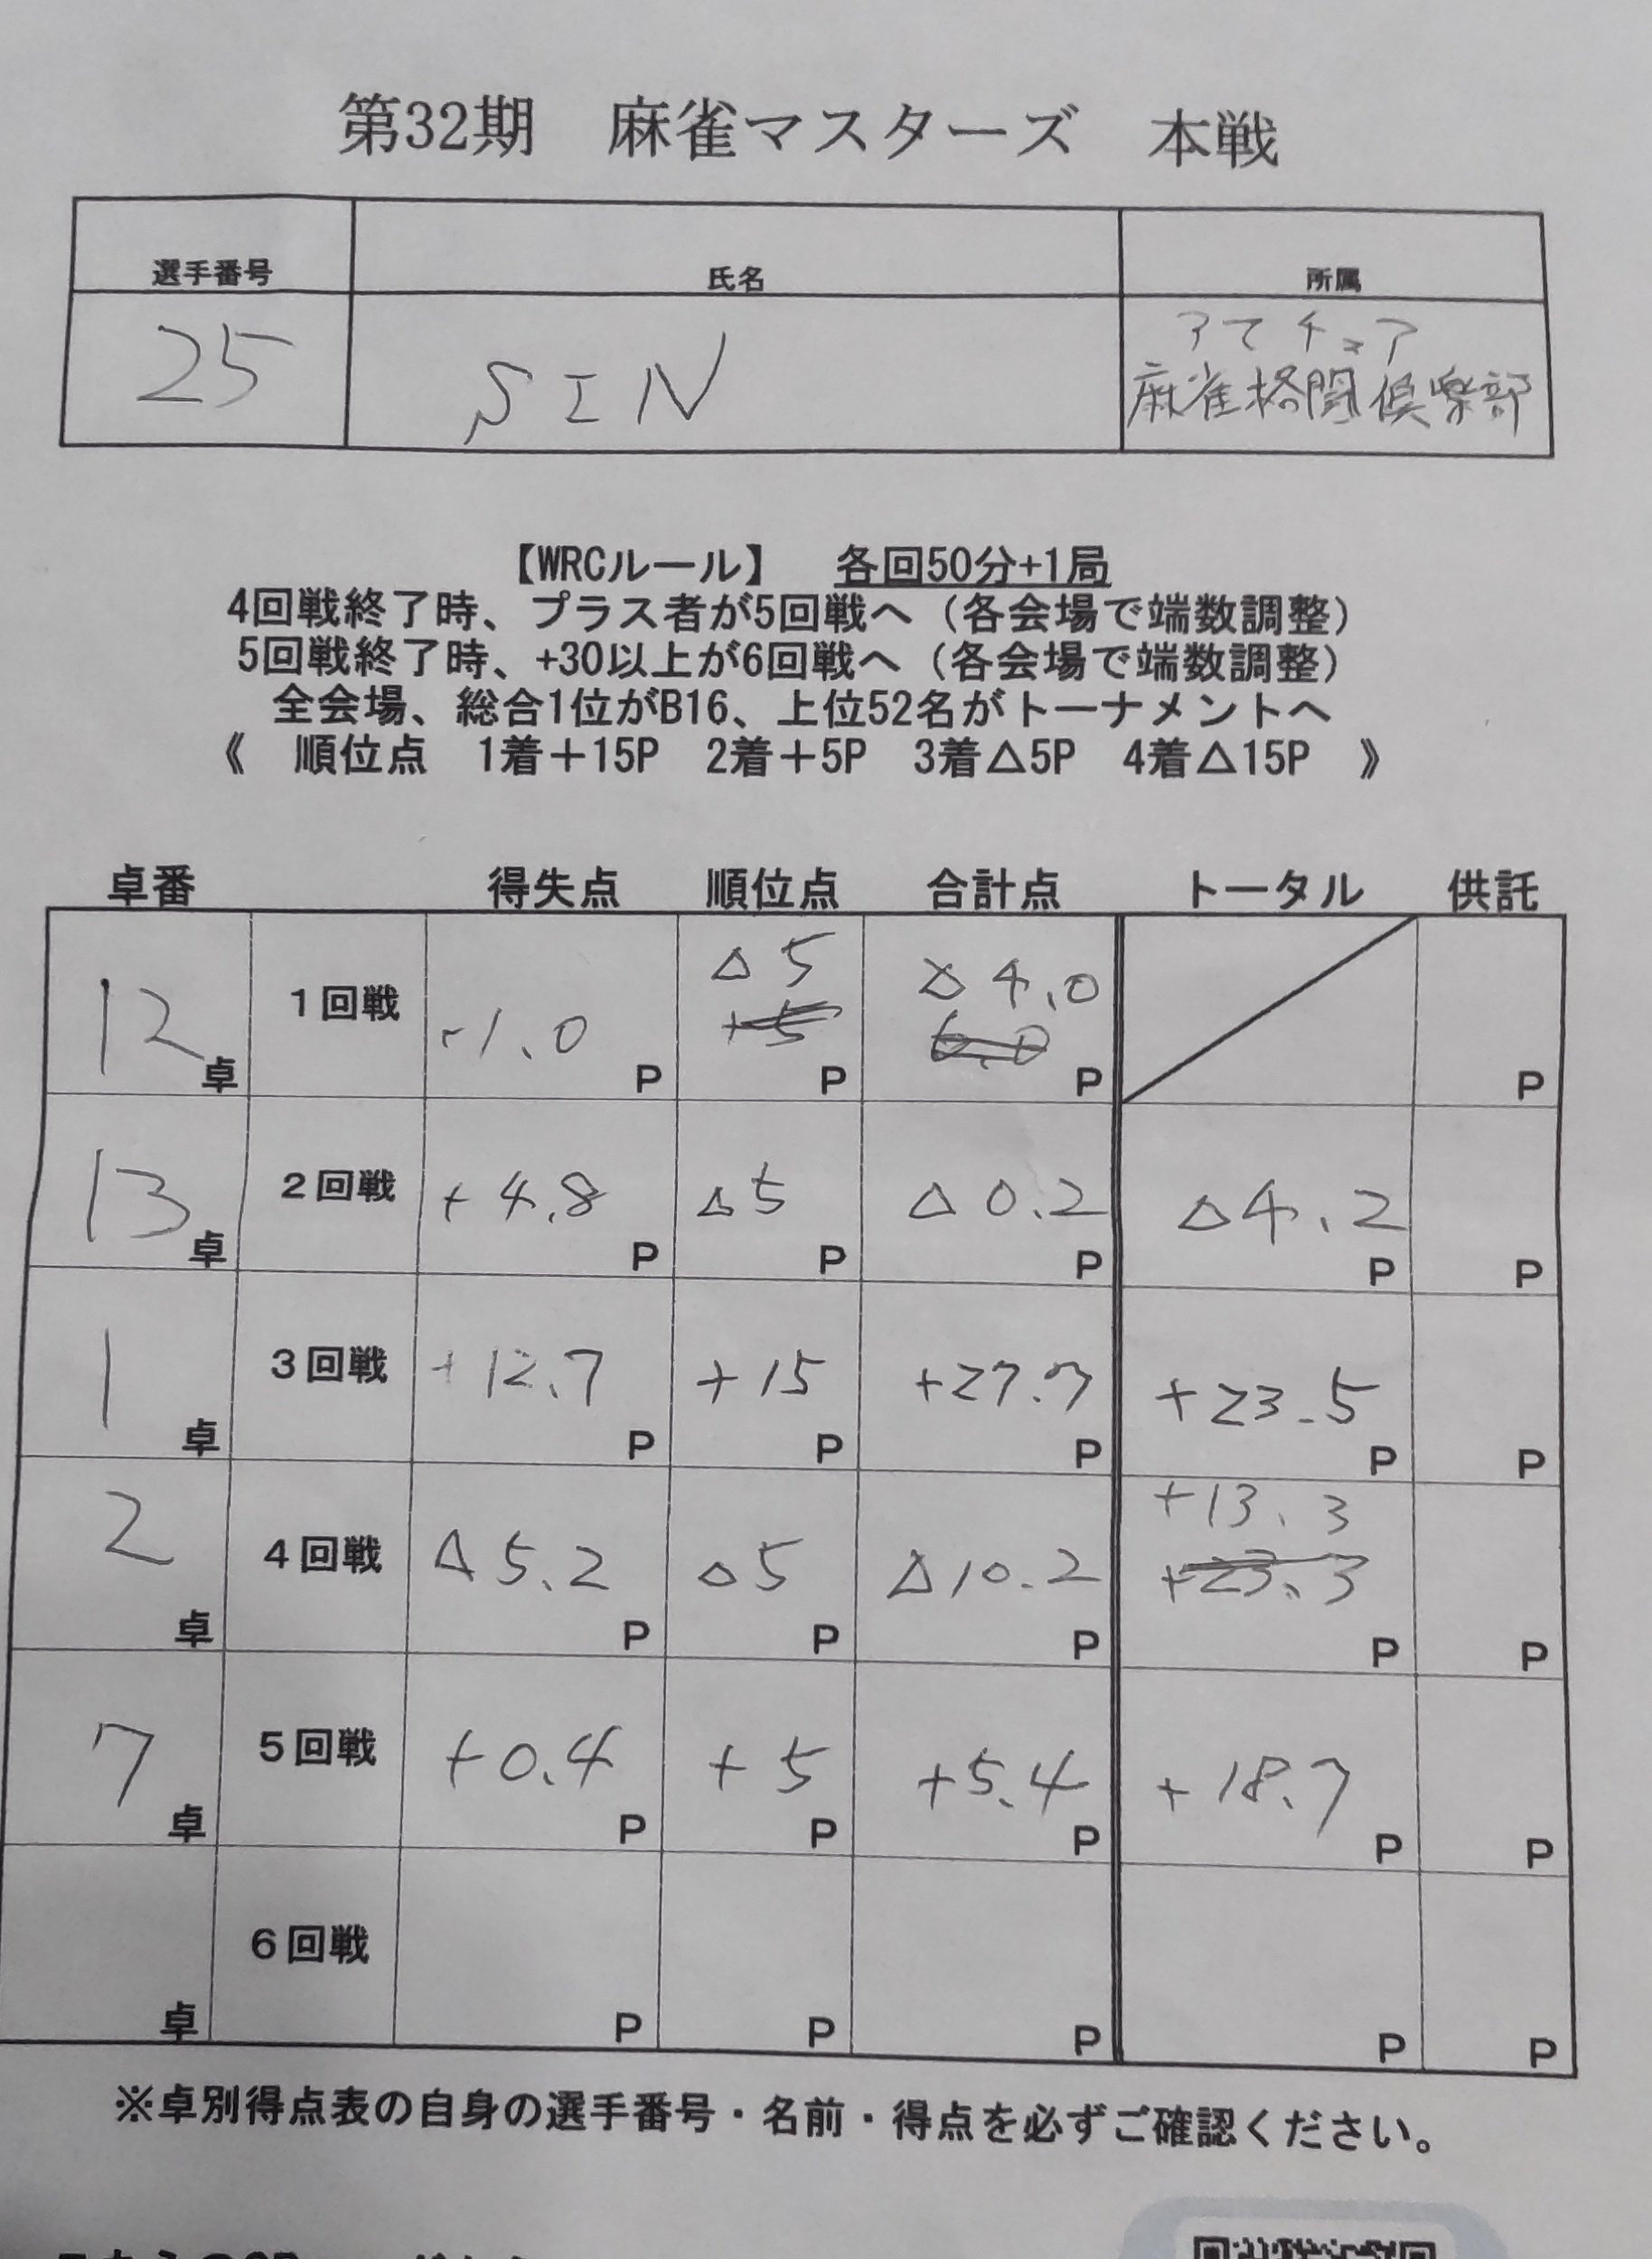 第32期 麻雀マスターズ 本戦
選手番号 氏名 所属
25 SIN アマチュア
麻雀格闘倶楽部
【WRCルール】 各回50分+1局
4回戦終了時、プラス者が5回戦へ（各会場で端数調整）
5回戦終了時、+30以上が6回戦へ（各会場で端数調整）
全会場、総合1位がB16、上位52名がトーナメントへ
《 順位点 1着＋15P 2着＋5P 3着△5P 4着△15P 》
卓番 得失点 順位点 合計点 トータル 供託
△5 △4.0
12卓 1回戦 +1.0P +5P 6.0P P
13卓 2回戦 +4.8P △5P △0.2P △4.2P P
1卓 3回戦 +12.7P +15P +27.7P +23.5P P
+13.3
2卓 4回戦 △5.2P △5P △10.2P +23.3P P
7卓 5回戦 +0.4P +5P +5.4P +18.7P P
卓 6回戦 P P P P P
※卓別得点表の自身の選手番号・名前・得点を必ずご確認ください。